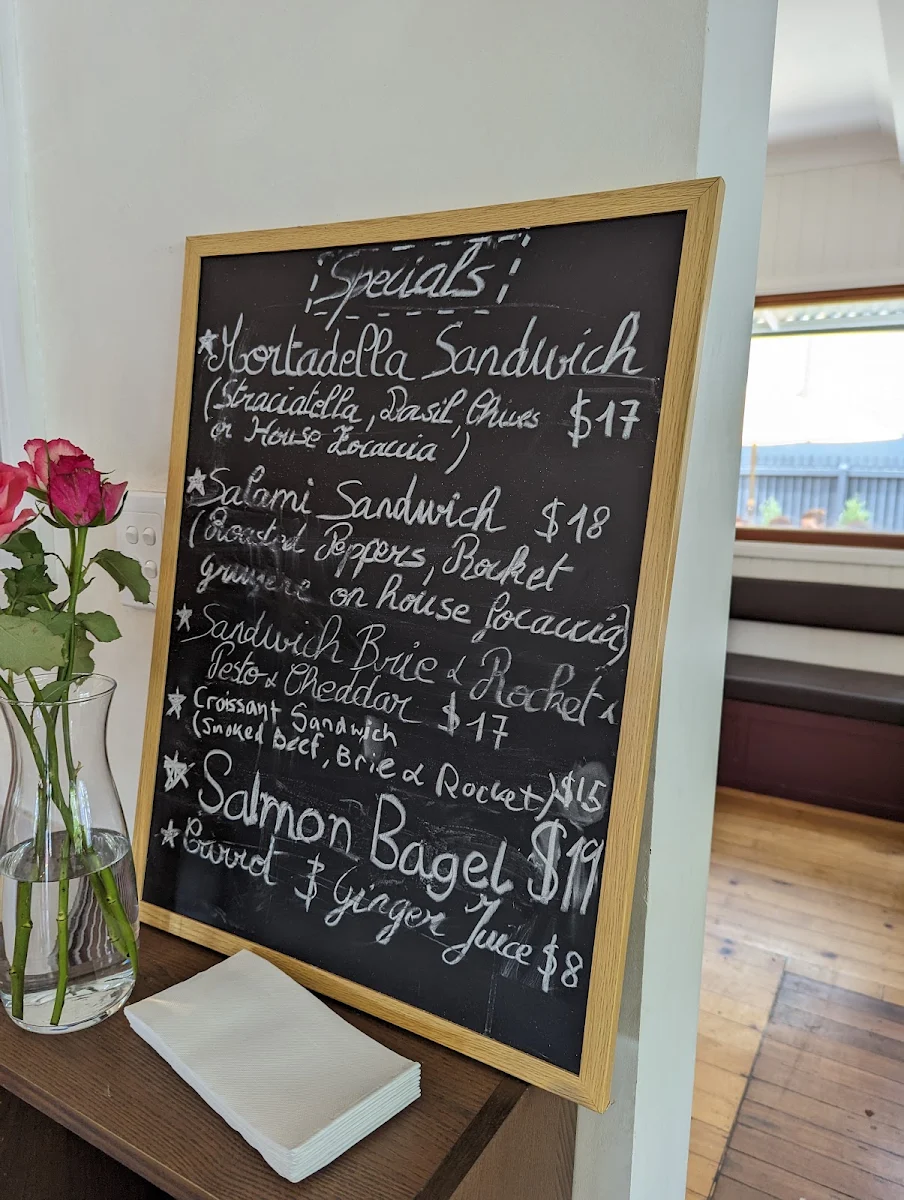 Specials
Mortadella Sandwich
(Straciatella, Basil, Chives $17
on House Focaccia)
Salami Sandwich $18
(Roasted Peppers, Rocket
gruyere on house focaccia)
Sandwich Brie & Rocket &
Pesto & Cheddar $17
Croissant Sandwich
(Smoked Beef, Brie & Rocket) $15
Salmon Bagel $19
Carrot $ Ginger Juice $8